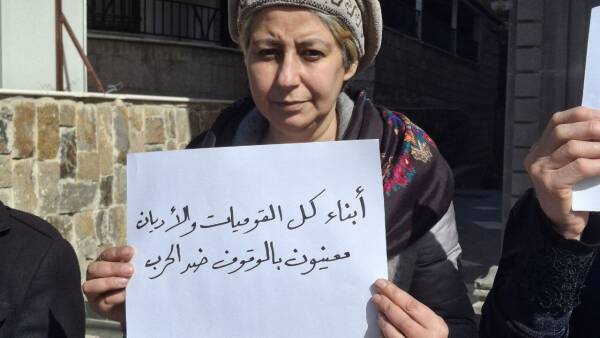 أبناء كل القوميات والأديان
معينون بالوقوف ضد الحرب